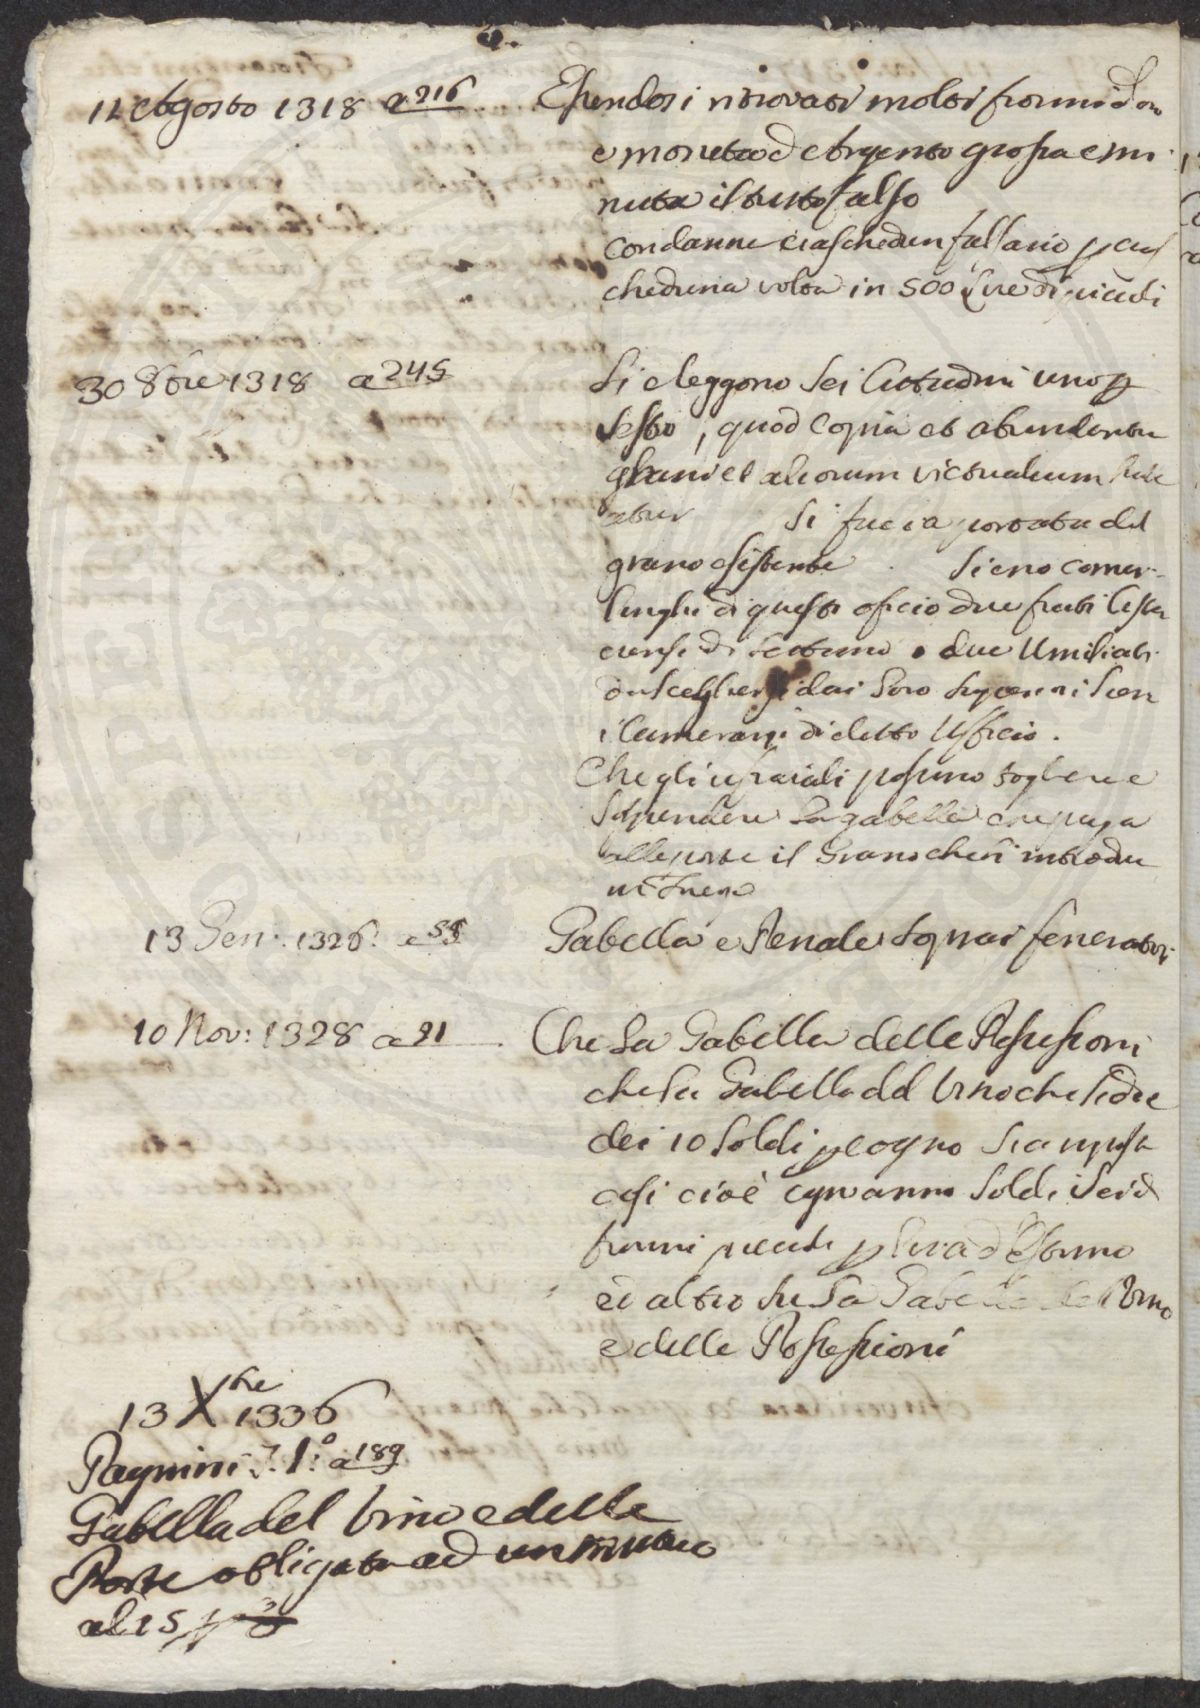 11 Agosto 1318 a 216
Essendosi ritrovati molti fiorini d'oro
e moneta d'Argento grossa e mi-
nuta il tutto falso
condanni ciaschedun falsario p cias
cheduna volta in 500 Lire di piccoli
30 8bre 1318 a 245
Si eleggono sei Cittadini uno p
sesto, quod copia et abundantia
grani et aliorum victualium
Si faccia portata del
grano esistente. Sieno Camar-
linghi di questo oficio due frati Cister
ciensi di Settimo e due Umiliati
da sceglersi dai loro superiori
i Camerari di detto Ufficio.
Che gli ufiziali possino togliere e
sospendere la gabella che paga
alle porte il Grano che si introdu
13 Gen: 1326: a 55
Gabella e Penale sopra i feneratori
10 Nov: 1328 a 21
Che la Gabella delle Possessioni
che la Gabella del Vino che si dice
dei 10 soldi p cogno sia imposta
cosi cioè ogni anno soldi sei di
fiorini piccoli p lira d'Estimo
ed altro su la Gabella del Vino
e delle Possessioni
13 Xbre 1336
Pagnini T. 1.o a 189
Gabella del Vino e delle
Porte obligata ad un mutuo
al 15 p